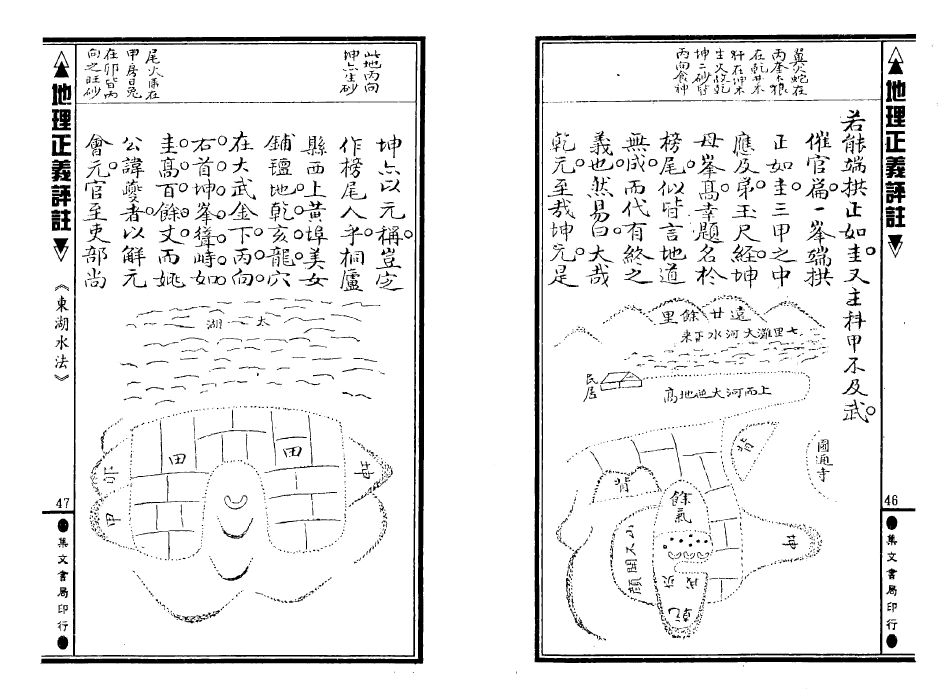 地理正義評註
46
集文書局印行
翼火蛇在
丙奎木狼
在乾井木
犴在坤木
生火故乾
坤二砂皆
丙向食神
若能端拱正如圭又主科甲不及武
催官篇一峯端拱
正如圭三甲之中
應及弟玉尺經坤
母峯高幸題名於
榜尾似皆言地道
無成而代有終之
義也然易曰大哉
乾元至哉坤元是
遠廿餘里
七里灘大河水下來
民居
上而河大迎地高
圓通寺
背
背
餘氣
山不開顏
母
乾
地理正義評註
《東湖水法》
47
集文書局印行
此地丙向
坤亦生砂
尾火虎在
甲房日兔
在卯皆丙
向之旺砂
坤亦以元稱豈定
作榜尾人乎桐廬
縣西上黃埠美女
鋪氊地乾亥龍穴
在大武金下丙向
右首坤峯聳峙如
圭高百餘丈而姚
公諱夔者以解元
會元官至吏部尚
太湖
田
田
卯
甲
母